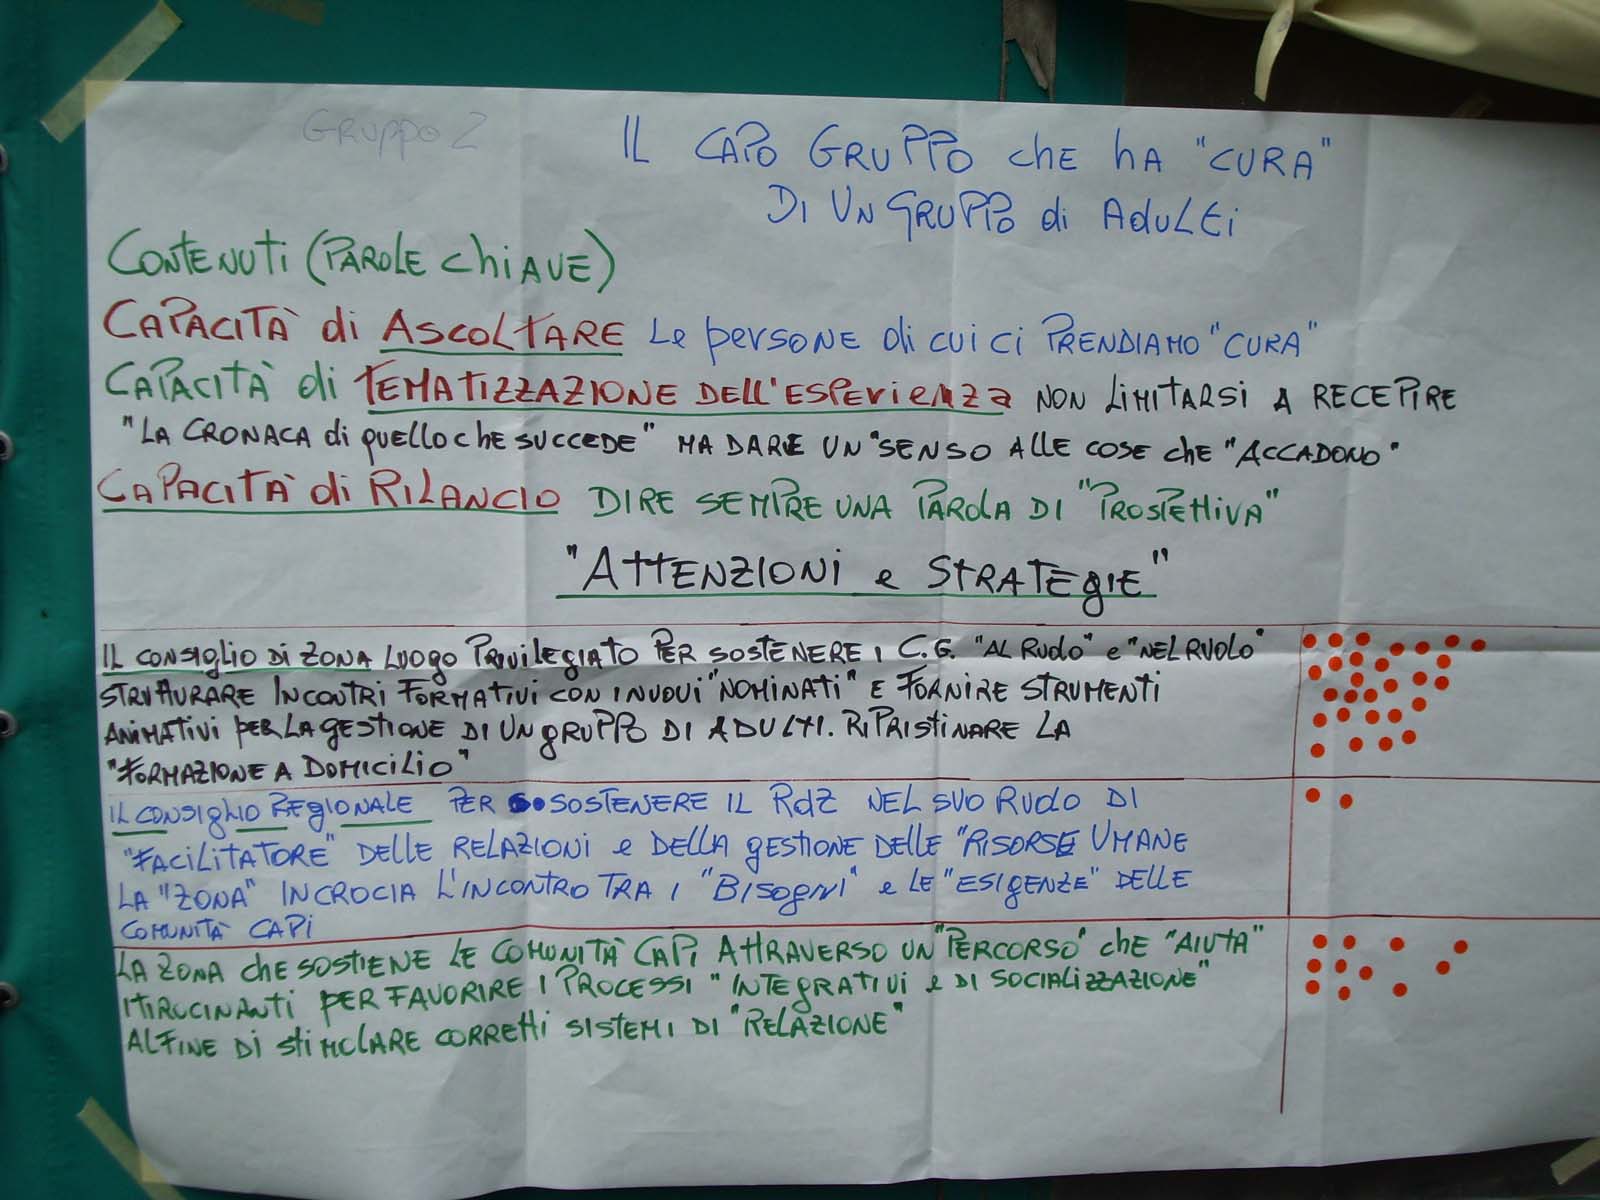 GRUPPO 2
IL CAPO GRUPPO chE hA "CURA"
DI UN GRUPPO di ADULti
CONTENUTI (PAROLE chiAVE)
CAPACITÀ di ASCOLTARE LE persone di cui ci PRENDIAMO "CURA"
CAPACITÀ di TEMATIZZAZIONE DELL'ESPERIENZA NON LIMITARSI A RECEPIRE
"LA CRONACA di quello chE SUCCEDE" MA DARE UN "SENSO ALLE COSE chE "ACCADONO"
CAPACITÀ di RILANCIO DIRE SEMPRE UNA PAROLA DI "PROSPETTIVA"
"ATTENZIONI e STRATEGIE"
IL CONSIGLIO DI ZONA LUOGO PRIVILEGIATO PER SOSTENERE I C.G. "AL RUOLO" e "NEL RUOLO"
STRUTTURARE INCONTRI FORMATIVI CON I NUOVI "NOMINATI" E FORNIRE STRUMENTI
ANIMATIVI PER LA GESTIONE DI UN GRUPPO DI ADULTI. RIPRISTINARE LA
"FORMAZIONE A DOMICILIO"
IL CONSIGLIO REGIONALE PER SOSTENERE IL RdZ NEL SUO RUOLO DI
"FACILITATORE" DELLE RELAZIONI e DELLA GESTIONE DELLE "RISORSE UMANE
LA "ZONA" INCROCIA L'INCONTRO TRA I "BISOGNI" e LE "ESIGENZE" DELLE
COMUNITÀ CAPI
LA ZONA chE SOSTIENE LE COMUNITÀ CAPI ATTRAVERSO UN "PERCORSO" chE "AIUTA"
I TIROCINANTI PER FAVORIRE I PROCESSI "INTEGRATIVI e DI SOCIALIZZAZIONE"
AL FINE DI STIMOLARE CORRETTI SISTEMI DI "RELAZIONE"